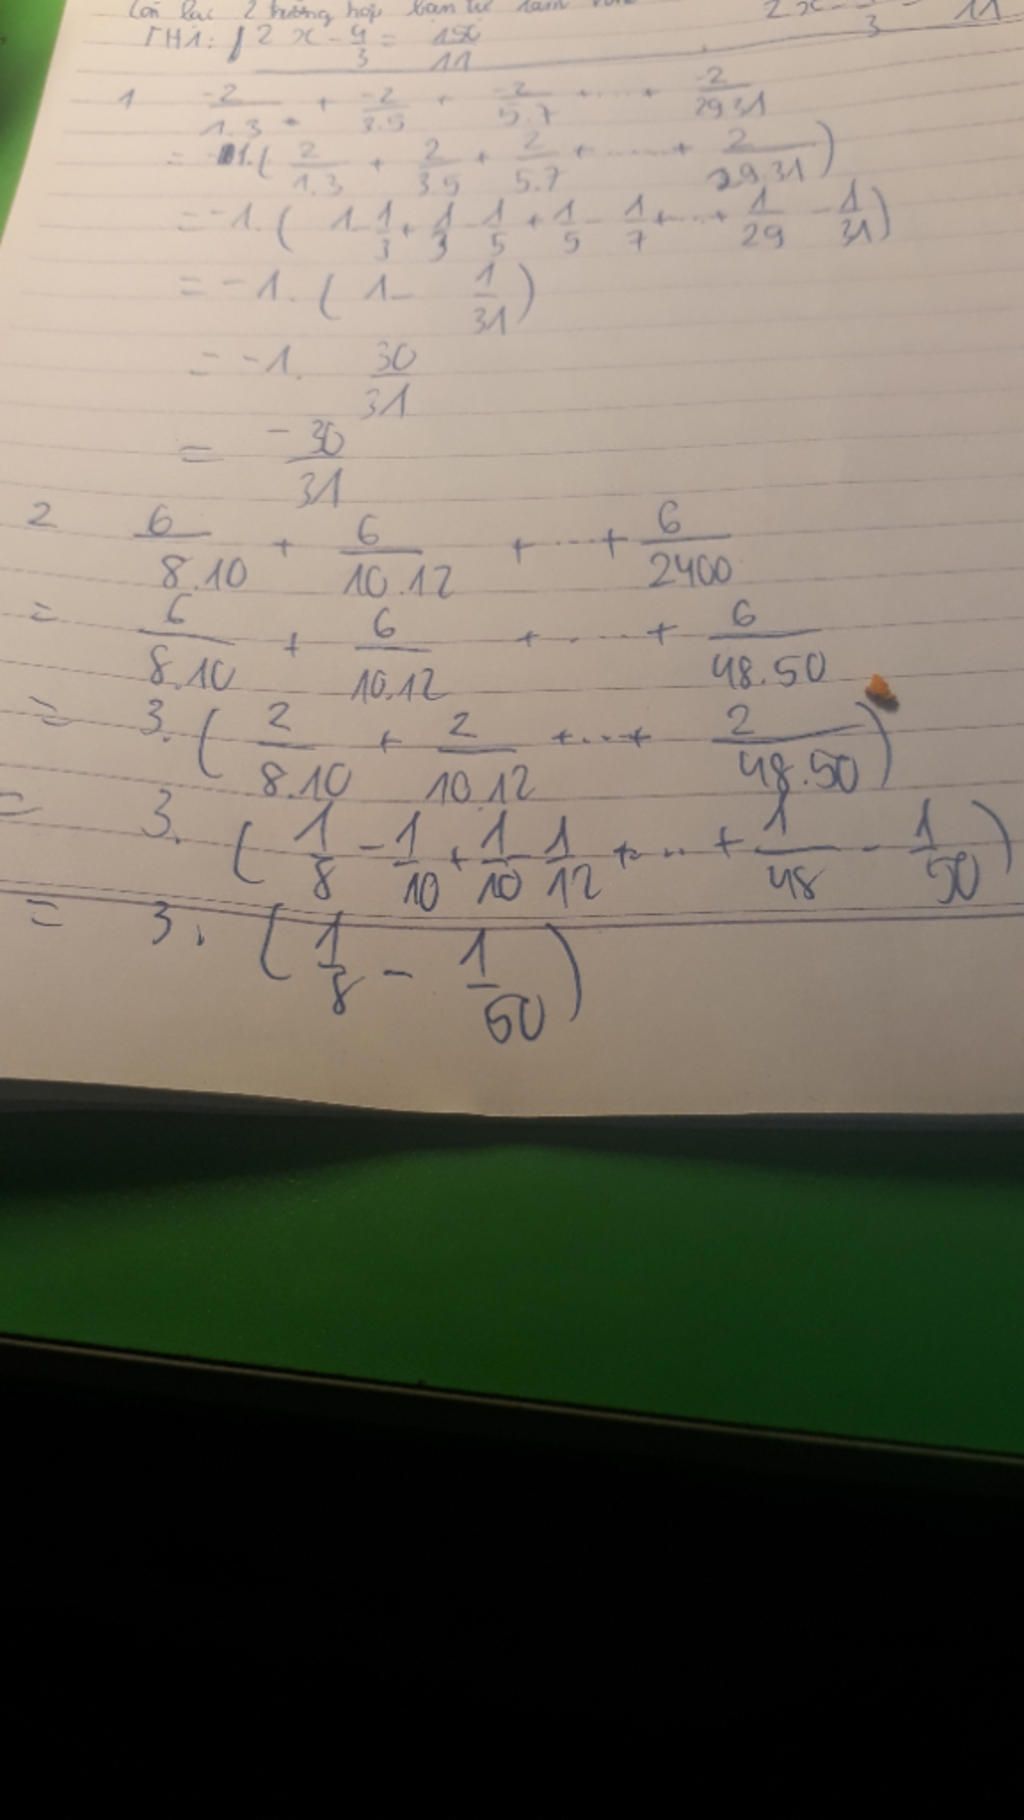 Còn lại 2 trường hợp bạn tự làm
2x - 3 11
TH1: 2x - 4/3 = 11
1 -2/1.3 + -2/3.5 + -2/5.7 + .... + -2/29.31
= -1.( 2/1.3 + 2/3.5 + 2/5.7 + ...... + 2/29.31 )
= -1. ( 1 - 1/3 + 1/3 - 1/5 + 1/5 - 1/7 + ... + 1/29 - 1/31 )
= -1. ( 1 - 1/31 )
= -1. 30/31
= -30/31
2 6/8.10 + 6/10.12 + ... + 6/2400
= 6/8.10 + 6/10.12 + .... + 6/48.50
= 3. ( 2/8.10 + 2/10.12 + ... + 2/48.50 )
= 3. ( 1/8 - 1/10 + 1/10 - 1/12 + ... + 1/48 - 1/50 )
= 3. ( 1/8 - 1/50 )